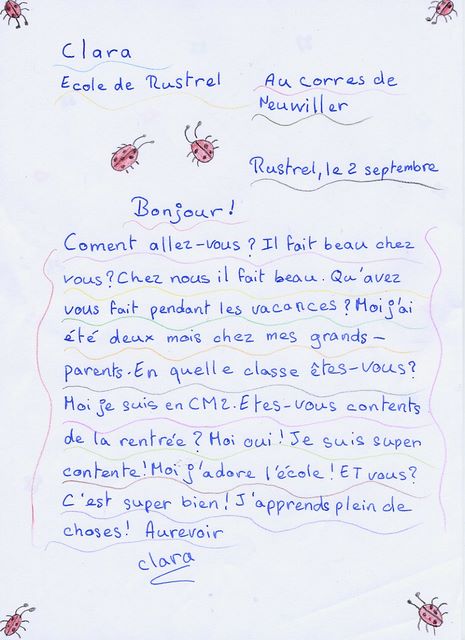 Clara
Ecole de Rustrel
Au corres de
Neuwiller
Rustrel, le 2 septembre
Bonjour!
Coment allez-vous? Il fait beau chez
vous? Chez nous il fait beau. Qu'avez
vous fait pendant les vacances? Moi j'ai
été deux mois chez mes grands-
parents. En quelle classe êtes-vous?
Moi je suis en CM2. Etes-vous contents
de la rentrée? Moi oui! Je suis super
contente! Moi j'adore l'école! ET vous?
C'est super bien! J'apprends plein de
choses! Aurevoir
clara